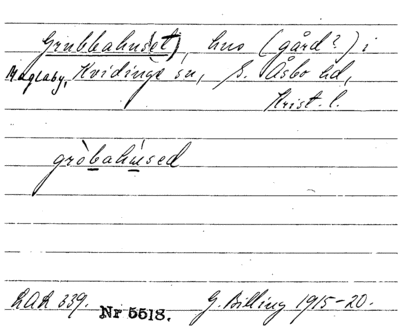 Grubbahus(et), hus (gård?) i
Maglaby, Kvidinge sn, S. Åsbo hd,
Krist. l.
gròbahùsed
RAÄ 339. Nr 5518. G. Billing 1915-20.